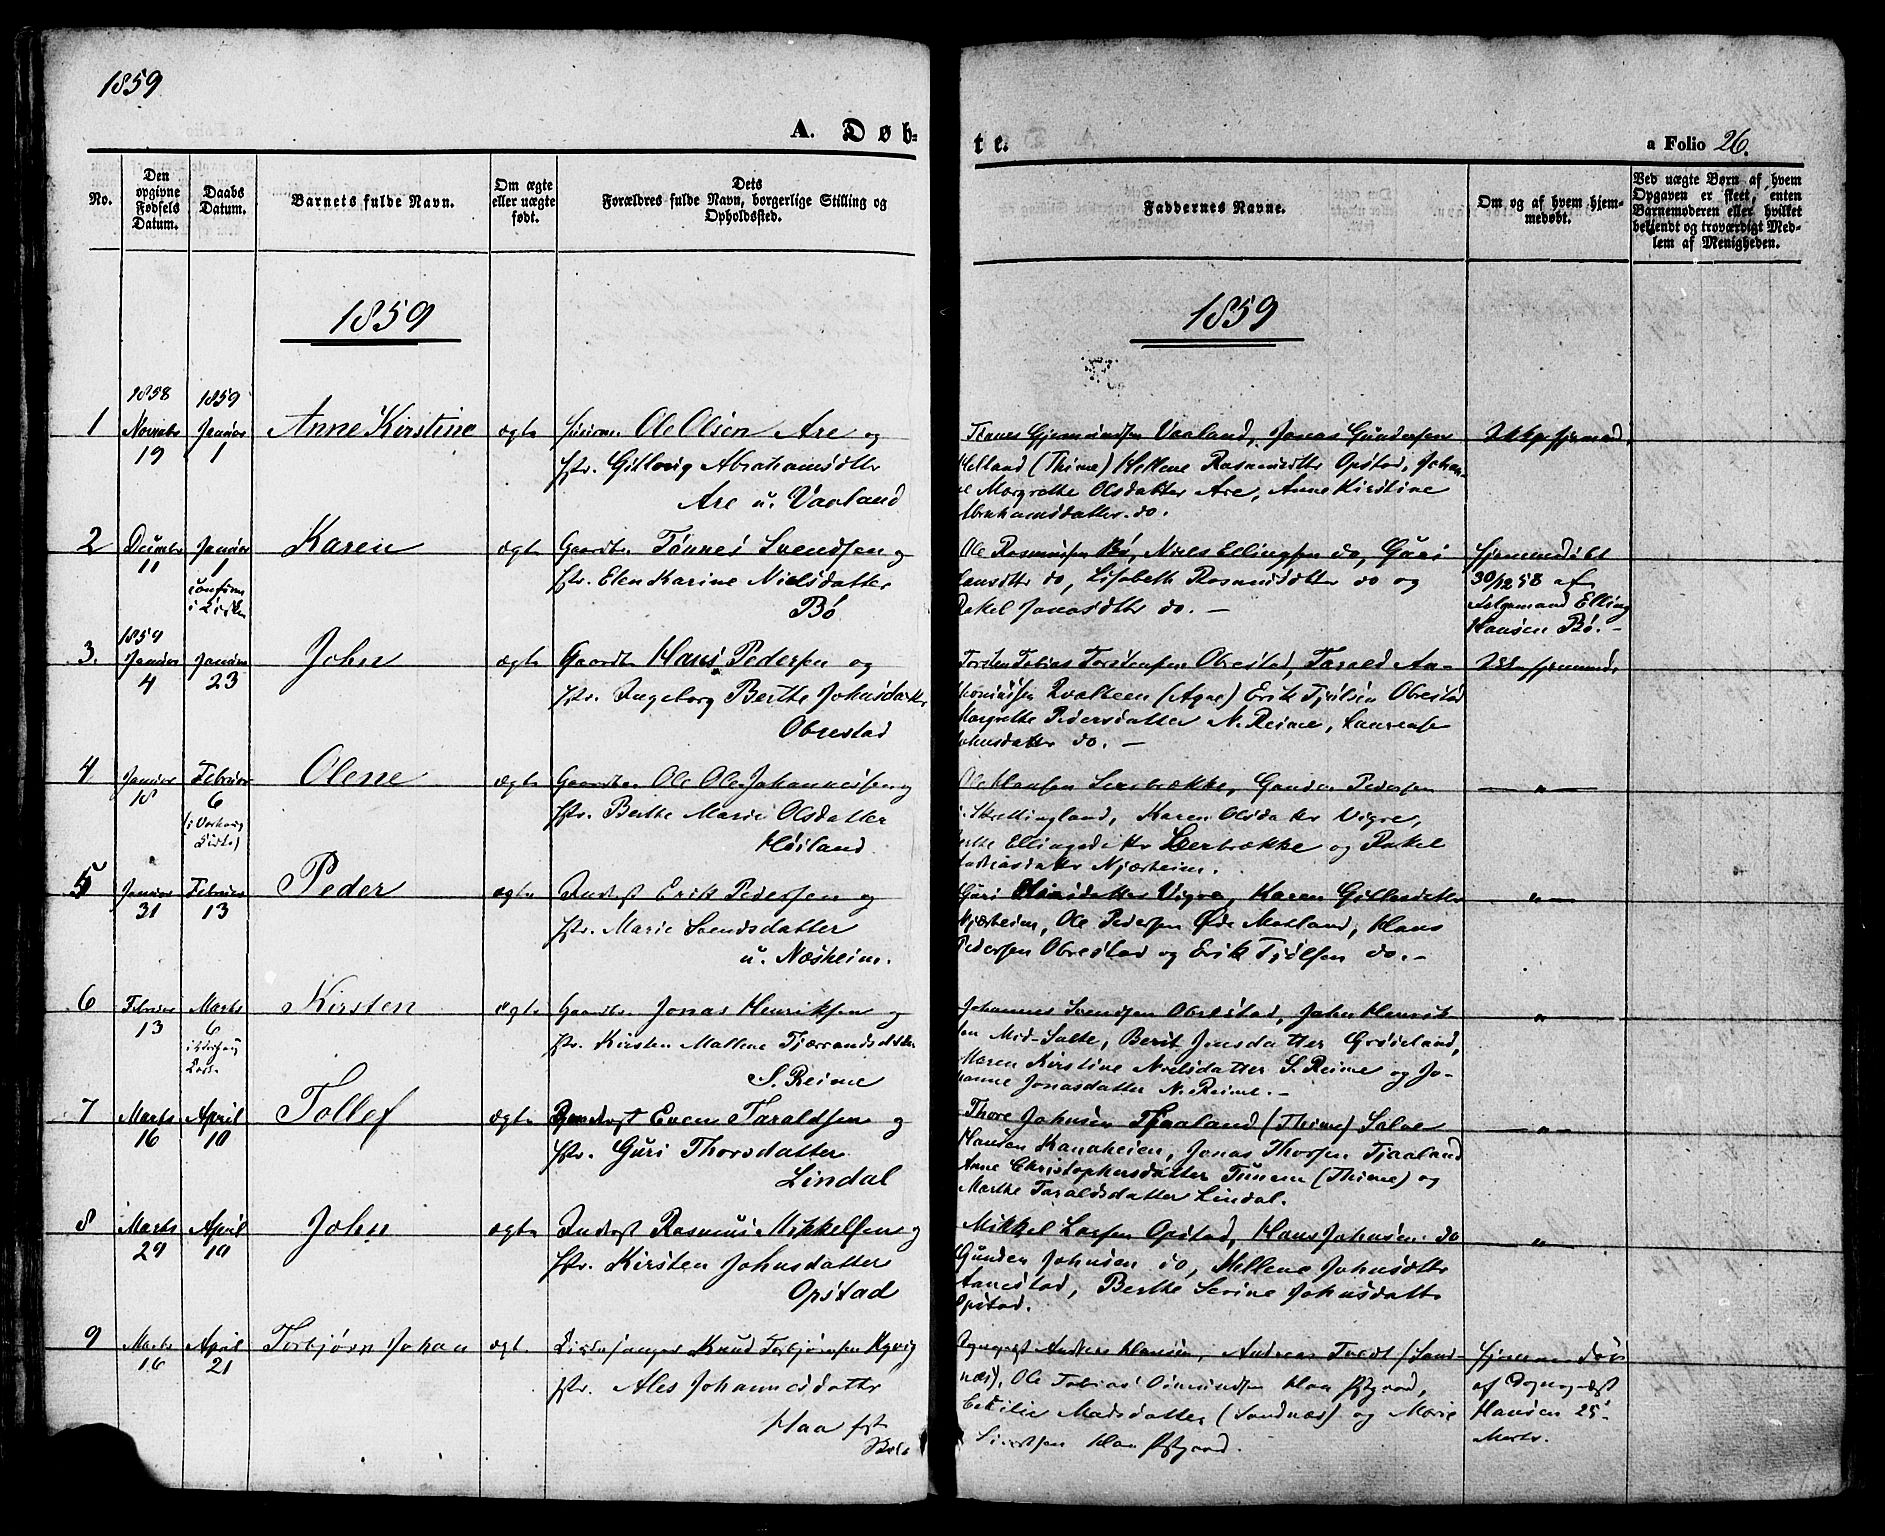 1859
A. Døb-
te.
a Folio 26.
No.
Den opgivne Fødsels Datum.
Daabs Datum.
Barnets fulde Navn.
Om ægte eller uægte født.
Dets Forældres fulde Navn, borgerlige Stilling og Opholdssted.
Faddernes Navne.
Om og af hvem hjem-
medøbt.
Ved uægte Børn af, hvem
Opgaven er skeet, enten
Barnemoderen eller hvilket
bekjendt og troværdigt Med-
lem af Menigheden.
1859
1859
1858 1859
1 Novmbr 19 Januar 1 Anne Kirstine ægte Ole Olsen Are og
Hst. Gitlovig Abrahamsdttr
Are u. Vaaland
Tønnes Gjermundsen Vaaland, Jonas Gundersen
Helland (Thime) Hellene Rasmusdttr Opstad, Johan-
ne Margrethe Olsdatter Are, Anne Kirstine
Abrahamsdatter do.
Ikke hjemmed.
2 Decmbr 11 Januar 1 Karen ægte Gaardbr. Tønnes Svendsen og
Hst. Elen Karine Nielsdatter
Bø
Ole Rasmussen Bø, Niels Ellingsen do, Guri
Hansdttr do, Lisabeth Rasmusdttr do og
Rakel Jonasdttr do. —
Hjemmedøbt
30/12 58 af
Elling
Hansen Bø. —
1859
3. Januar 4 Januar 23 John ægte Gaardbr. Hans Pedersen og
Hst. Ingeborg Berthe Johnsdatter
Obrestad
Torsten Tobias Torstensen Obrestad, Tarald An-
Qvalteen (Ogne) Erik Tjølsen Obrestad
Margrethe Pedersdatter N. Reime, Laurense
Johnsdatter do. —
Ikke hjemmed.
4 Januar 18 Februar 6 (i Varhaug Kirke) Olene ægte Gaardbr. Ole Ole Johannessen og
Hst. Berthe Marie Olsdatter
Høiland
Ole Hansen Lerbrække, Gunder Pedersen
Skrettingland, Karen Olsdatter Vigre,
Berthe Ellingsdattr Lerbrække og Rakel
Njærheim.
— " —
5 Januar 31 Februar 13 Peder ægte Inderst Erik Pedersen og
Hst. Marie Svendsdatter
u. Næsheim.
Guri Olsdatter Vigre, Karen Gitlesdatter
Njærheim, Ole Pedersen Øde Motland, Hans
Pedersen Obrestad og Erik Tjølsen do. —
— " —
6 Februar 13 Marts 6 Kirsten ægte Gaardbr. Jonas Henriksen og
Hst. Kirsten Mallene Tjærandsdatter
S. Reime
Johannes Svendsen Obrestad, John Henrik-
sen Mid-Salte, Berit Jensdatter Grøteland,
Maren Kirstine Nielsdatter S. Reime og Jo-
hanne Jonasdatter N. Reime. —
— " —
7 Marts 16 April 10 Tollef ægte Even Taraldsen og
Hst. Guri Thorsdatter
Lindal
Thore Johnsen Tjaaland (Thime) Salve
Hansen Kanaheien, Jonas Thorsen Tjaaland
Anne Christophersdatter Tunem (Thime) og
Marthe Taraldsdatter Lindal.
— " —
8 Marts 29 April 10 John ægte Inderst Rasmus Mikkelsen og
Hst. Kirsten Johnsdatter
Opstad
Mikkel Larsen Opstad, Hans Johnsen do
Gunder Johnsen do, Mellene Johnsdttr
Aanestad, Berthe Serine Johnsdattr
Opstad.
— " —
9 Marts 16 April 21 Torbjørn Johan ægte Kirkesanger Knud Torbjørnsen Myvig
Hst. Ales Johannesdattr
Haa
Sognepræst Anders Hansen, Andreas Tvedt (Sand-
næs), Ole Tobias Osmundsen Haa Præstgaard,
Cecilie Madsdatter (Sandnæs) og Marie
Sivertsen Haa Præstgaard.
Hjemmedøbt
af Sognepræst
Hansen 25'
Marts.